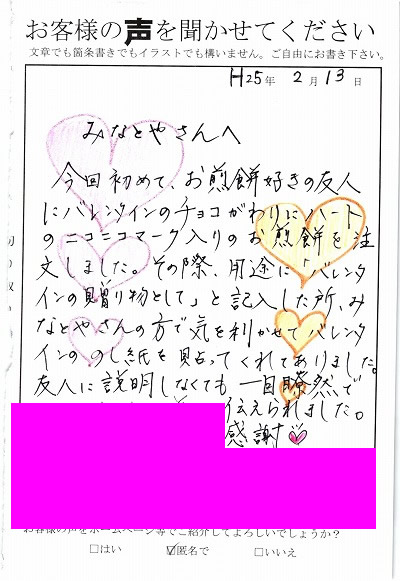 お客様の声を聞かせてください
文章でも箇条書きでもイラストでも構いません。ご自由にお書き下さい。
H25年 2月13日
みなとやさんへ
今回初めて、お煎餅好きの友人
にバレンタインのチョコがわりにハート
のニコニコマーク入りのお煎餅を注
文しました。その際、用途に「バレンタ
インの贈り物として」と記入した所、み
なとやさんの方で気を利かせてバレンタ
インの のし紙を貼ってくれてありました。
友人に説明しなくても一目瞭然で
伝えられました。
感謝
お客様の声をホームページ等でご紹介してよろしいでしょうか？
□はい ☑匿名で □いいえ